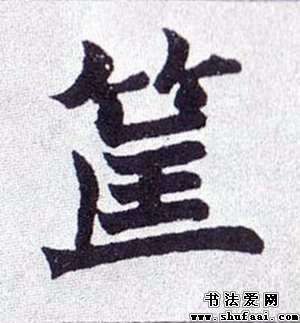 筐
书法爱网
www.shufaai.com